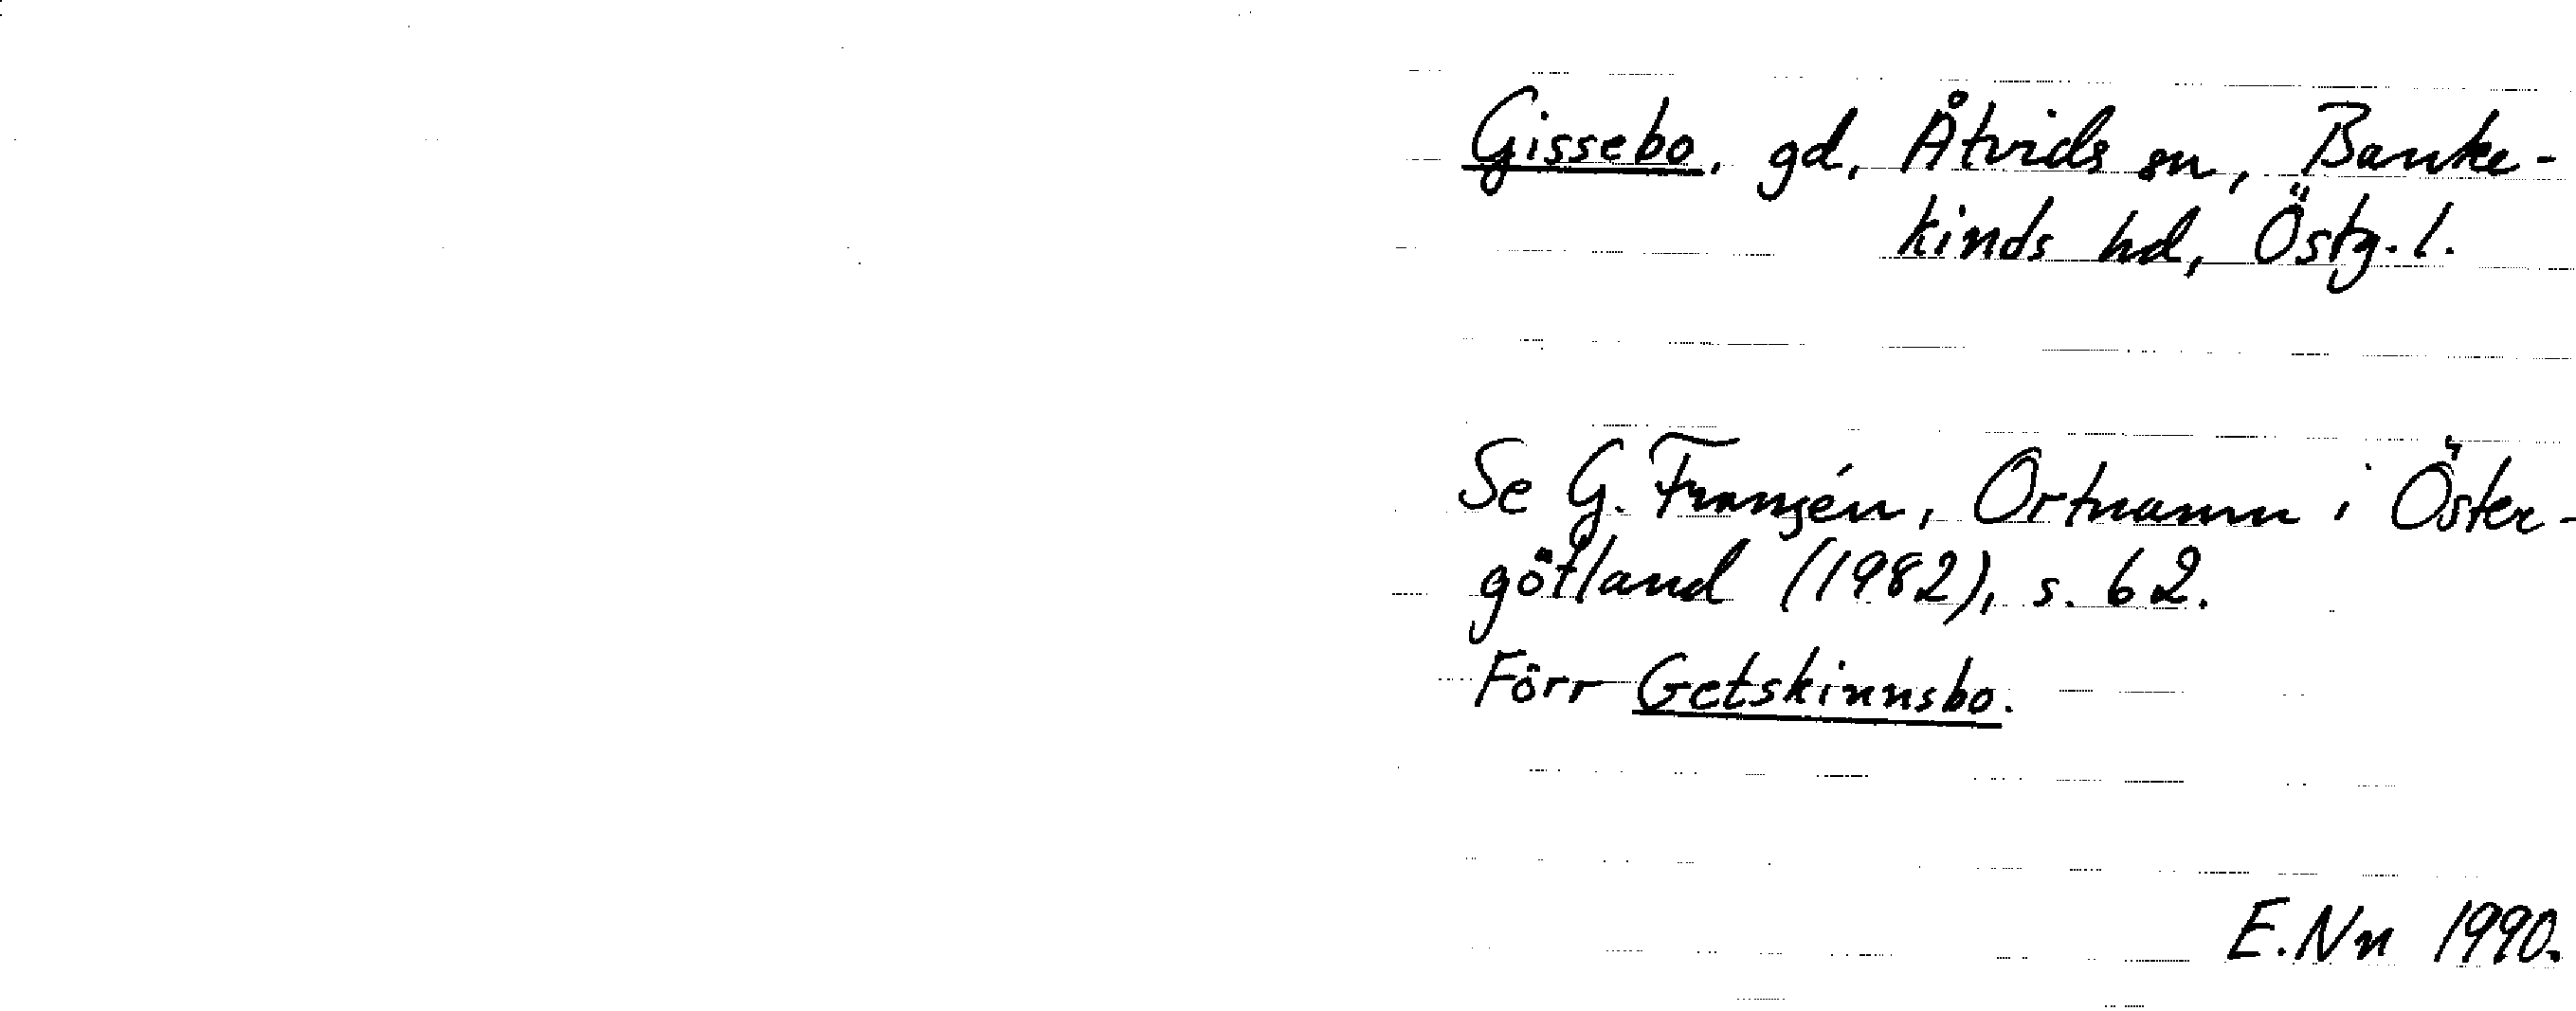 Gissebo, gd, Åtvids sn, Banke-
kinds hd, Östg. l.
Se G. Franzén, Ortnamn i Öster-
götland (1982), s. 62.
Förr Getskinnsbo.
E. Nn 1990.